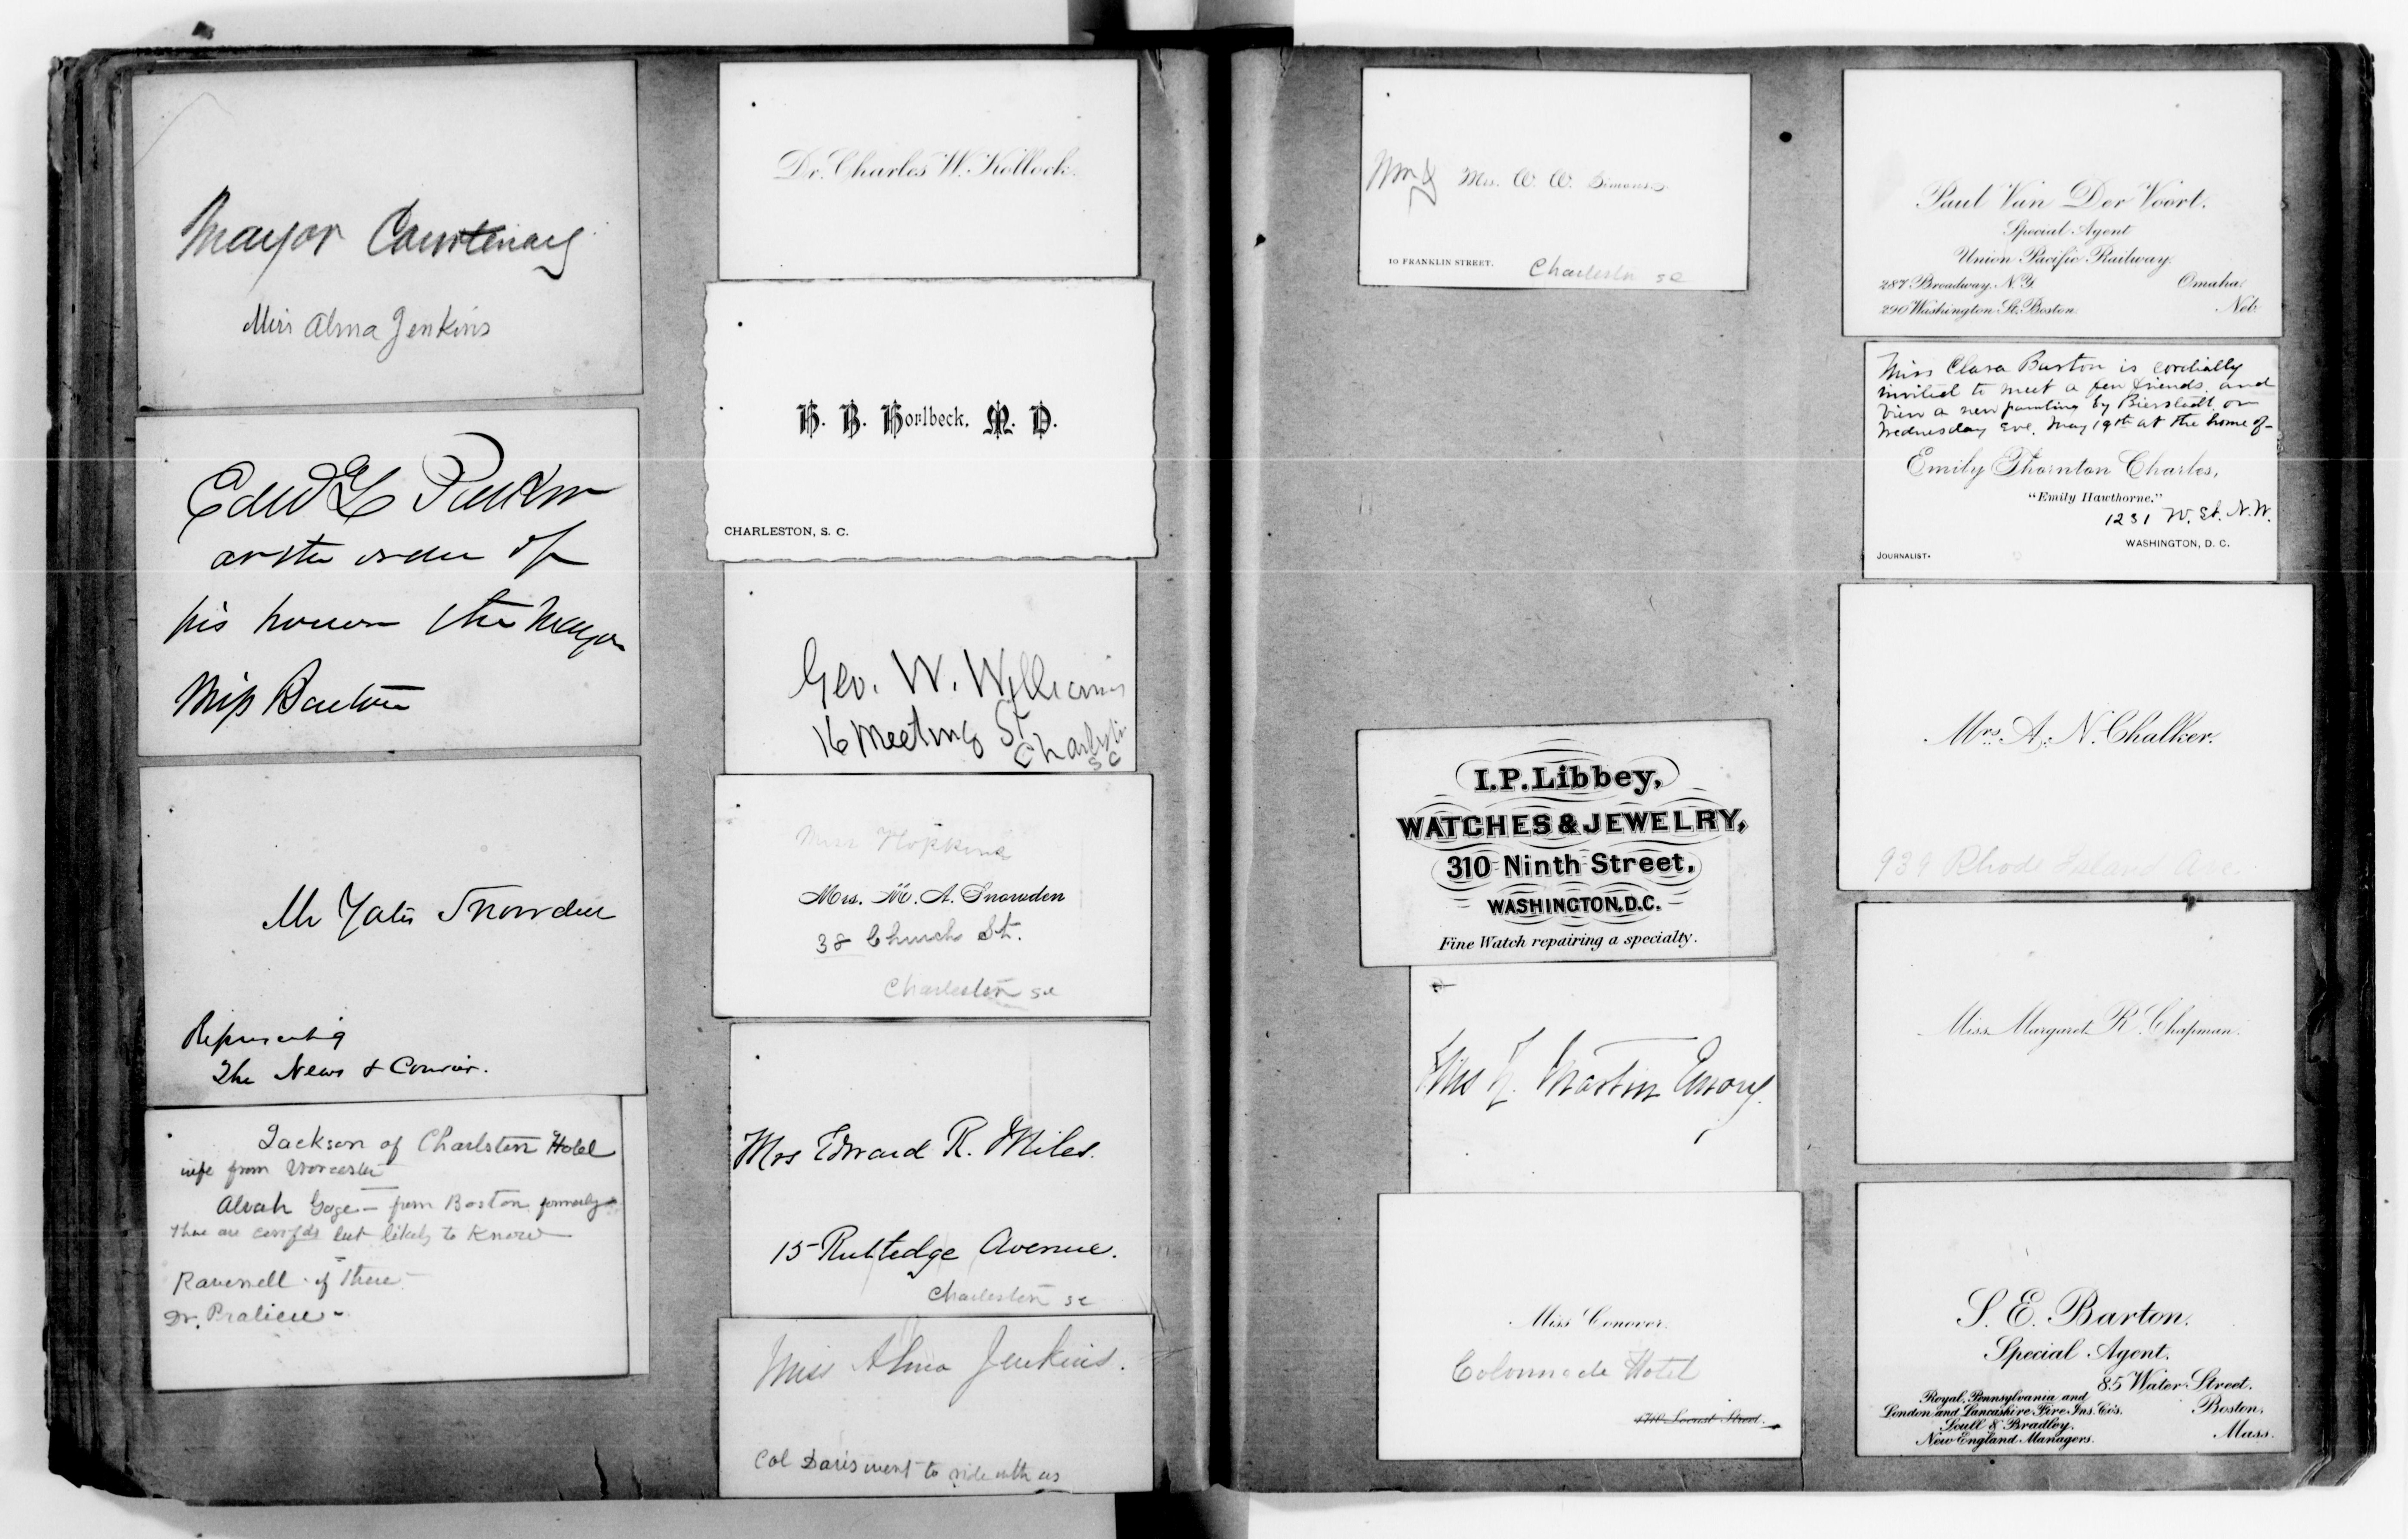 Mayor Courtenay
Miss Alma Jenkins
Edwd L Parker
or the order of
his honor the Mayor
Miss Barton
Mr Yates Snowden
Representing
The News & Courier.
Jackson of Charlston Hotel
wife from Worcester
Alvah Gage - from Boston formerly
but likely to know
Ravenell
Dr.
Dr. Charles W. Kollock.
H. B. Horlbeck, M. D.
CHARLESTON, S. C.
Geo. W. Williams
16 Meeting St
Charleston
S C
Miss Hopkins
Mrs. M. A. Snowden
38 Church St.
Charleston S C
Mrs Edward R. Miles.
15 Rutledge Avenue.
Charleston S C
Miss Alma Jenkins.
Col Davis went to ride with us
Mrs. W. W. Simons.
10 FRANKLIN STREET.
Charleston S C
I. P. Libbey,
WATCHES & JEWELRY,
310 Ninth Street,
WASHINGTON, D.C.
Fine Watch repairing a specialty.
Martin Emory.
Miss Conover.
Colonnade Hotel
1710 Locust Street.
Paul Van Der Voort.
Special Agent
Union Pacific Railway.
287 Broadway, N.Y. Omaha,
290 Washington St. Boston. Neb.
Miss Clara Barton is cordially
invited to meet a few friends, and
view a new painting by Bierstadt, on
Wednesday Eve. May 19th at the home of-
Emily Thornton Charles,
"Emily Hawthorne."
1231 W. St. N.W.
WASHINGTON, D. C.
JOURNALIST.
Mrs. A. N. Chalker.
939 Rhode Island Ave
Miss Margaret R. Chapman.
S. E. Barton.
Special Agent.
85 Water Street.
Boston,
Mass.
Royal, Pennsylvania and
London and Lancashire Fire Ins. Co's.
Scull & Bradley,
New England Managers.